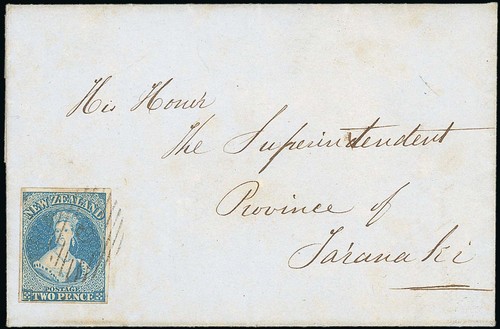 His Honor
The Superintendent
Province of
Taranaki
NEW ZEALAND
POSTAGE
TWO PENCE